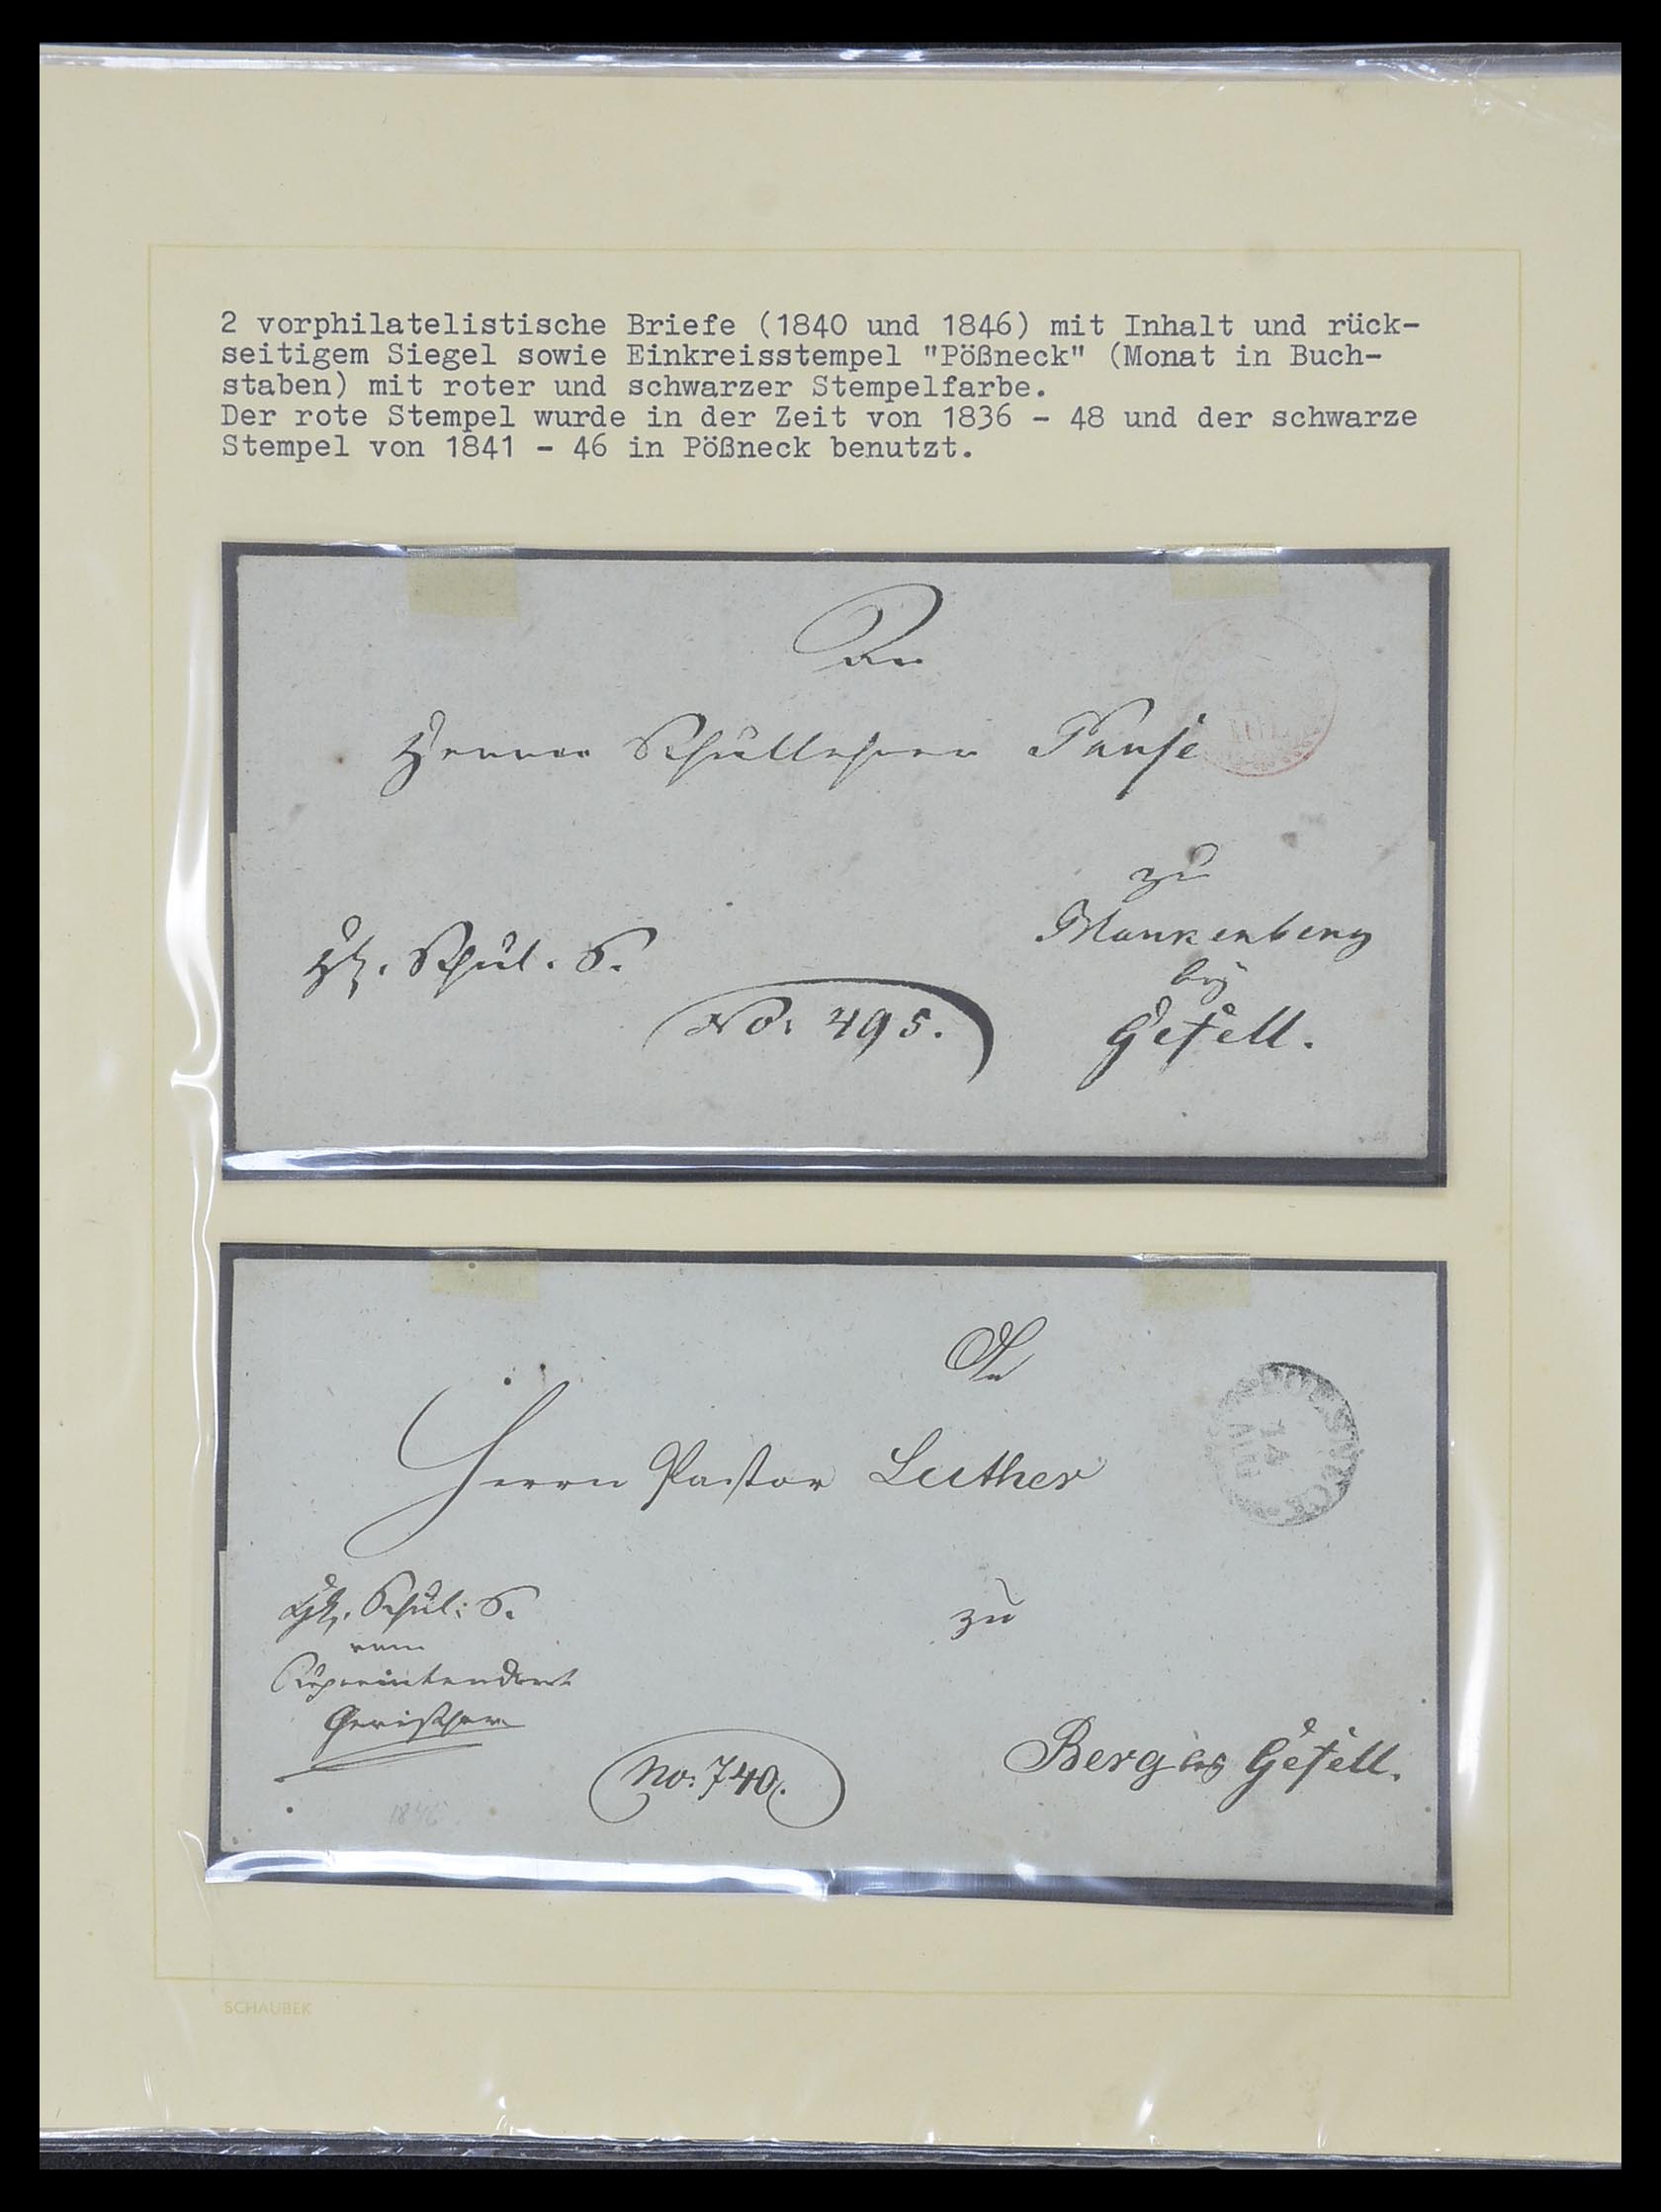 2 vorphilatelistische Briefe (1840 und 1846) mit Inhalt und rück-
seitigem Siegel sowie Einkreisstempel "Pößneck" (Monat in Buch-
staben) mit roter und schwarzer Stempelfarbe.
Der rote Stempel wurde in der Zeit von 1836 - 48 und der schwarze
Stempel von 1841 - 46 in Pößneck benutzt.
An
Herrn Schullehrer
zu
bey
Gefell.
Schul. S.
No: 495.
An
Herrn Pastor Luther
POESNECK
14
AUG
Schul: S.
vom
Superintendent
zu
Berg bey Gefell.
No: 740.
1846
SCHAUBEK